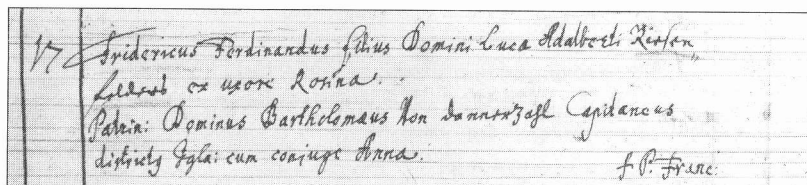 17 Fridericus Ferdinandus filius Domini Lucæ Adalberti Riesen„
felders ex uxore Rosina.
Patrin: Dominus Bartholomæus Von dannerzahl Capitaneus
districtq Igla: cum conjuge Anna.
f P. Franc: